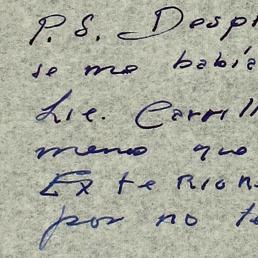 P. S. Desp
se me había
Lic. Carrill
meno que
Exterior
por no te